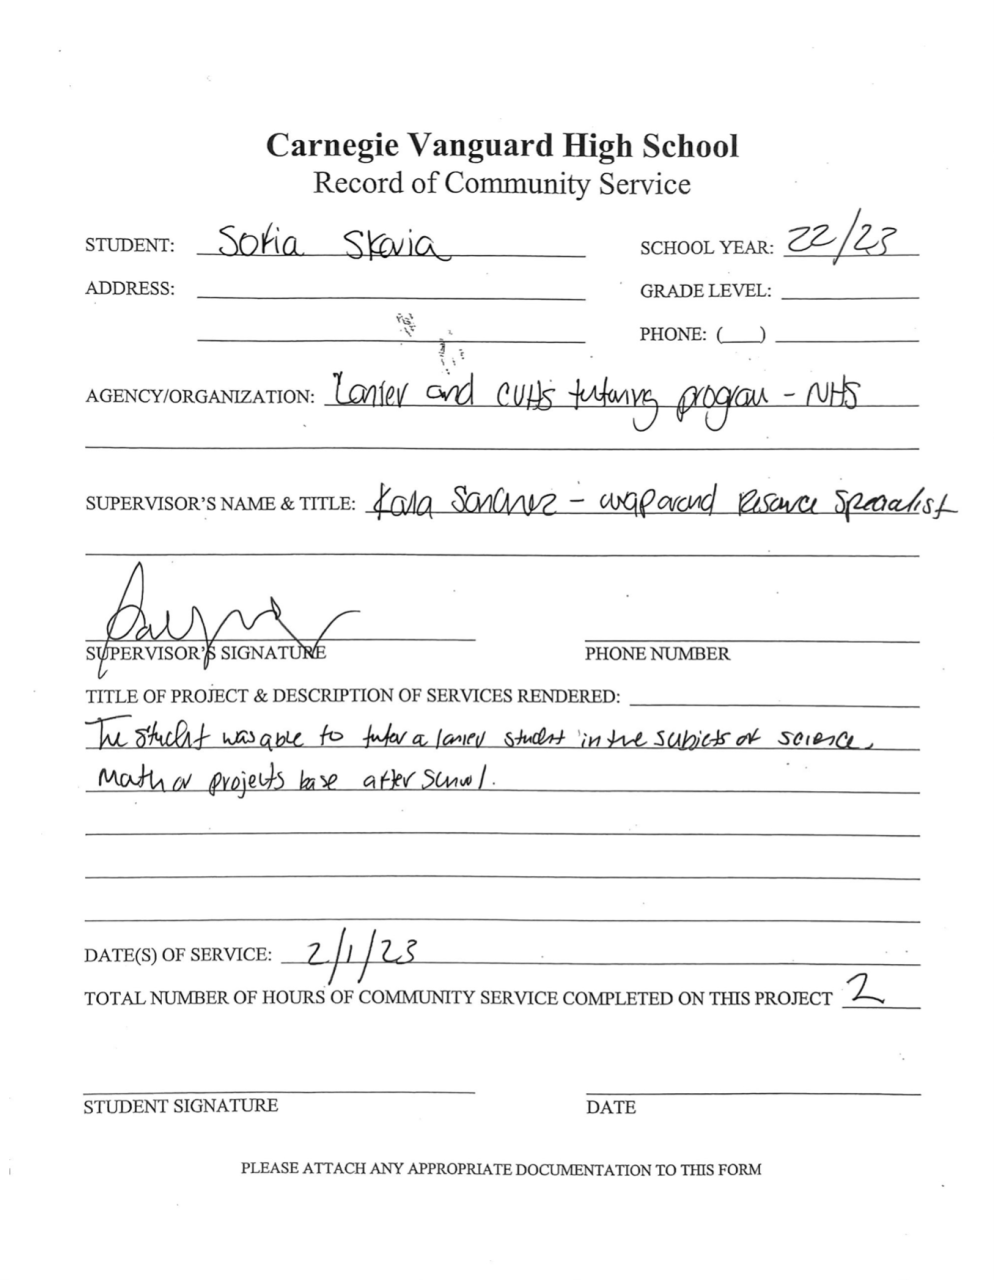 Carnegie Vanguard High School
Record of Community Service
STUDENT: Sofia Skavia SCHOOL YEAR: 22/23
ADDRESS: GRADE LEVEL:
PHONE: ( )
AGENCY/ORGANIZATION: Lanier and CVHS tutoring program - NHS
SUPERVISOR'S NAME & TITLE: Kala Sanchez - wraparound Resource Specialist
SUPERVISOR'S SIGNATURE PHONE NUMBER
TITLE OF PROJECT & DESCRIPTION OF SERVICES RENDERED:
The student was able to tutor a lanier student in the subjects of science,
Math or projects base after school.
DATE(S) OF SERVICE: 2/1/23
TOTAL NUMBER OF HOURS OF COMMUNITY SERVICE COMPLETED ON THIS PROJECT 2
STUDENT SIGNATURE DATE
PLEASE ATTACH ANY APPROPRIATE DOCUMENTATION TO THIS FORM